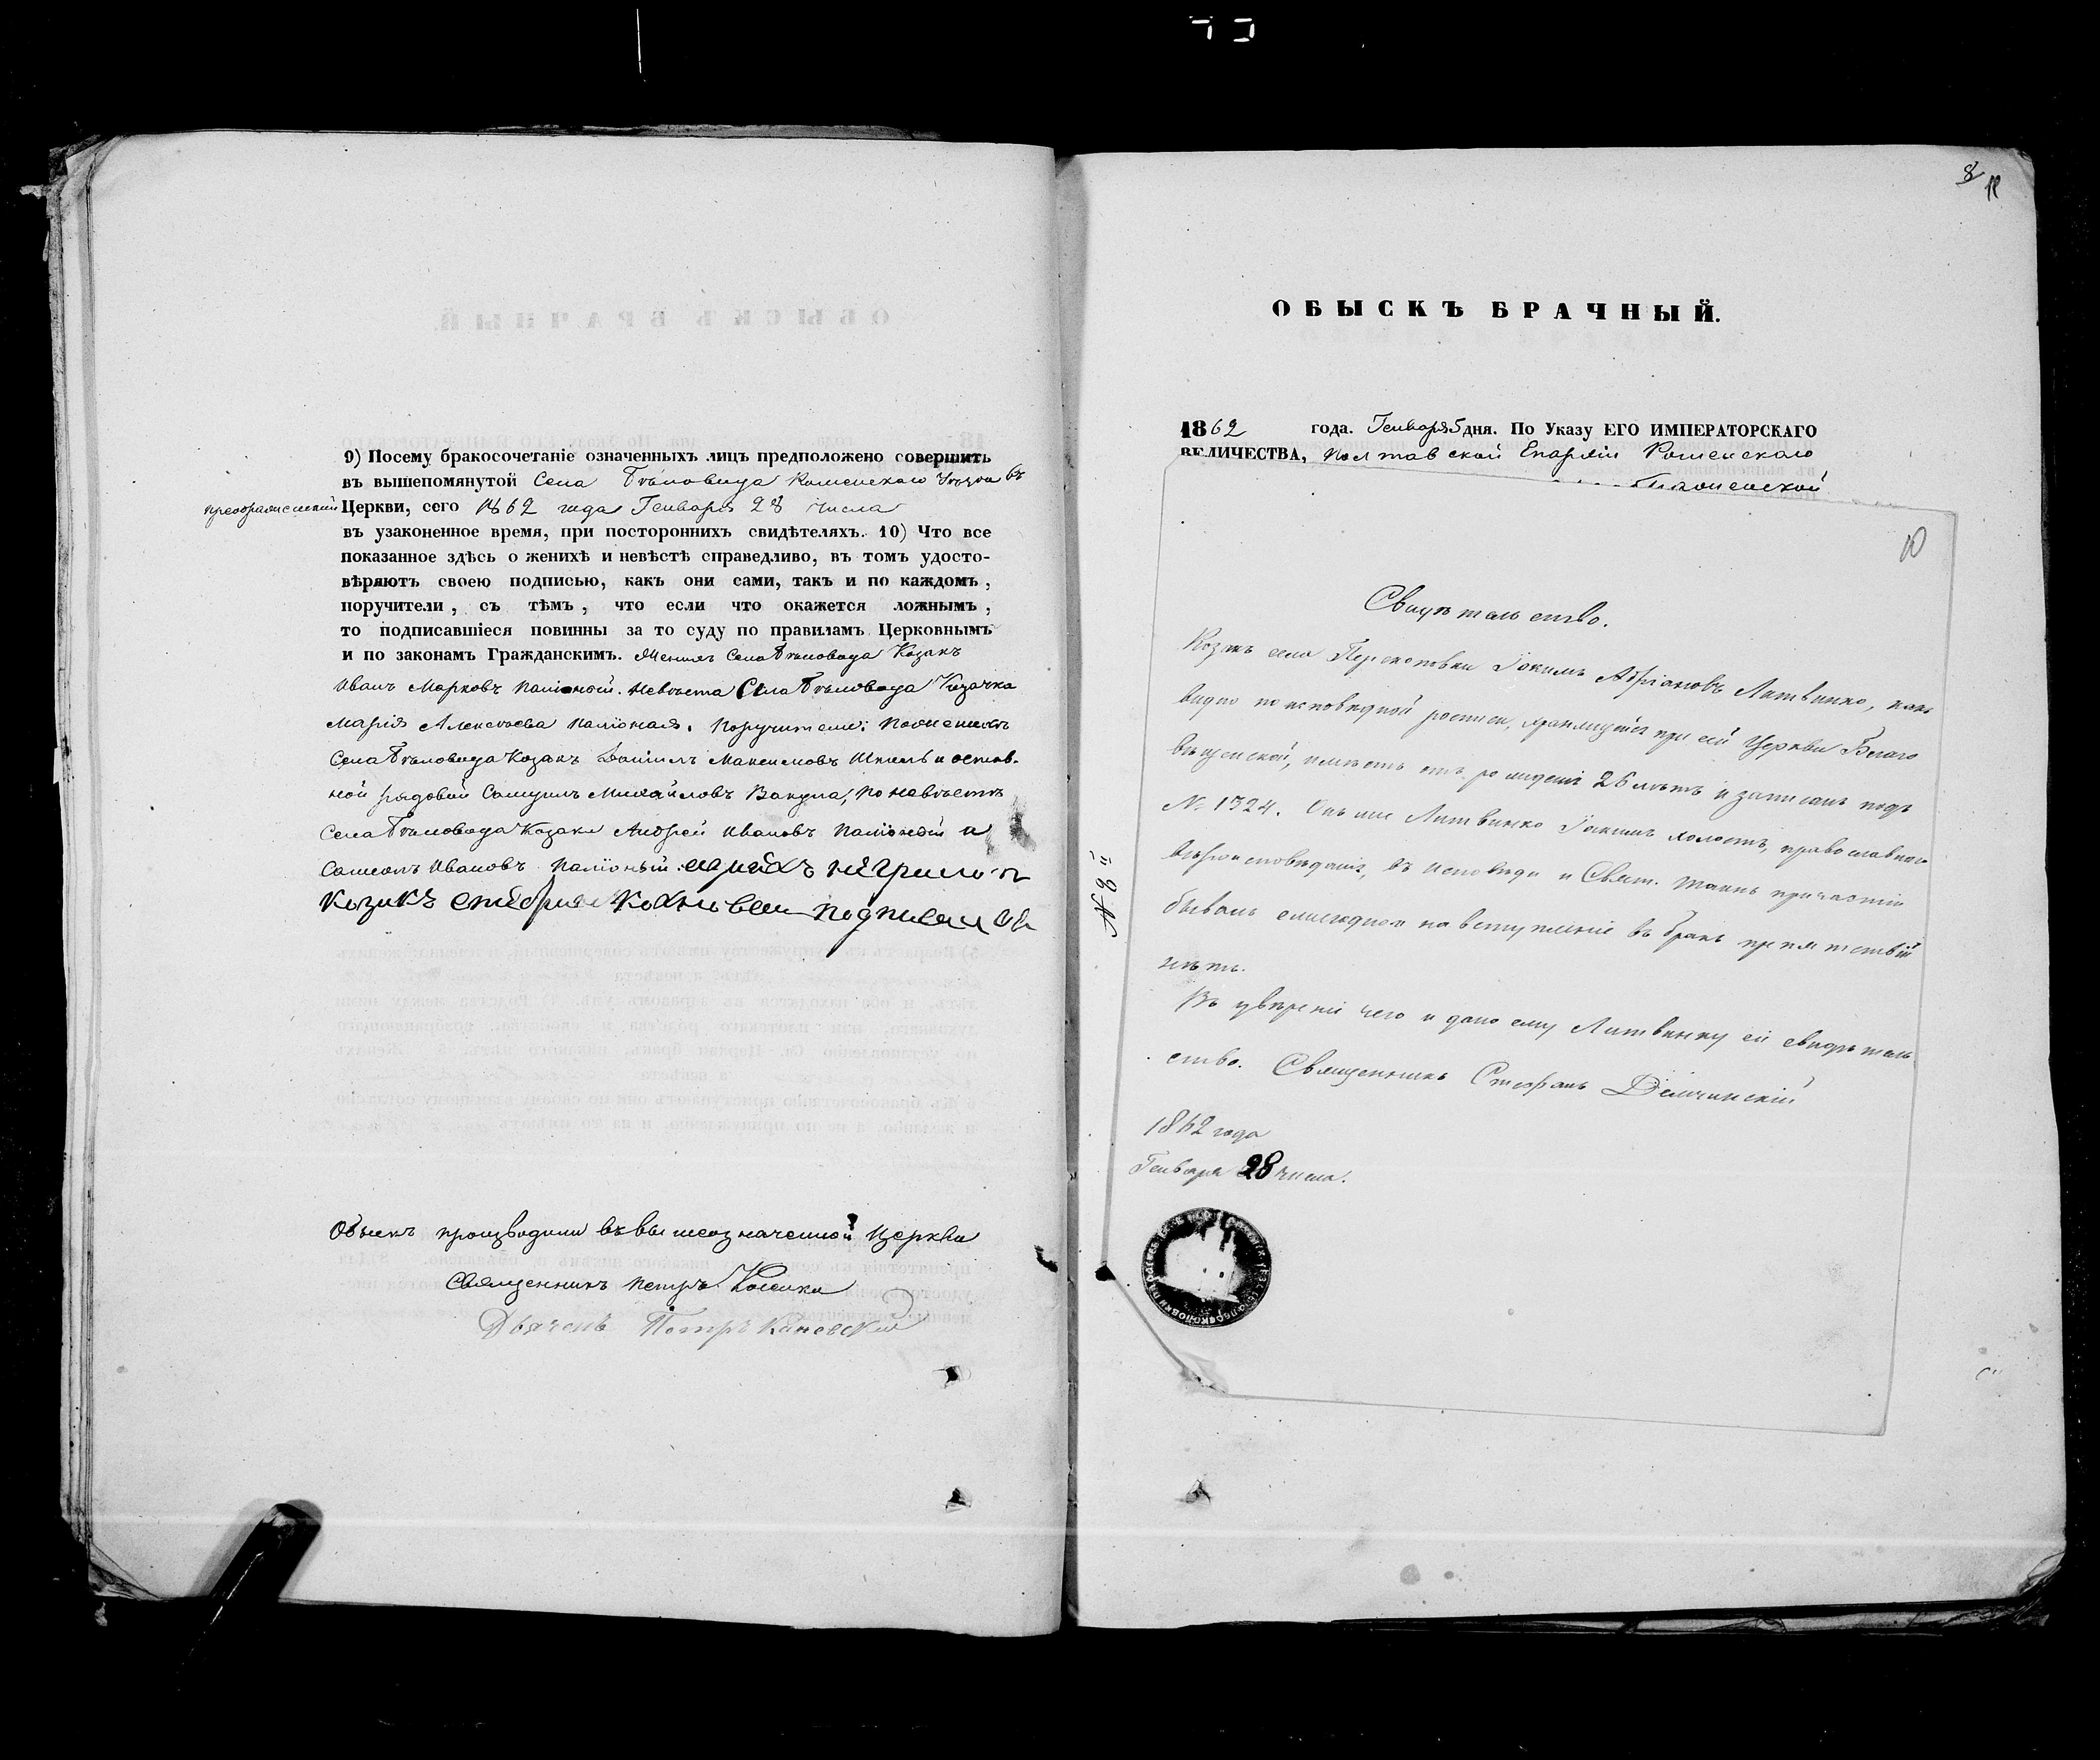 9) Посему бракосочетаніе означенныхъ лицъ предположено совершить
въ вышепомянутой Села Бѣловода Роменскаго Уѣзда въ
преображенской Церкви, сего 1862 года Генваря 28 числа
въ узаконенное время, при постороннихъ свидѣтеляхъ. 10) Что все
показанное здѣсь о женихѣ и невѣстѣ справедливо, въ томъ удосто-
вѣряютъ своею подписью, какъ они сами, такъ и по каждомъ,
поручители, съ тѣмъ, что если что окажется ложнымъ,
то подписавшіеся повинны за то суду по правиламъ Церковнымъ
и по законамъ Гражданскимъ. Женихъ Села Бѣловода Козакъ
Иванъ Марковъ Паліоный. Невѣста Села Бѣловода Козачка
Марія Алексѣева Паліоная. Поручители: По женихѣ
Села Бѣловода Козакъ Даніилъ Максимовъ и
рядовой Самуилъ Михайловъ Вакула, по невѣстѣ
Села Бѣловода Козаки Андрей Ивановъ Паліоный и
Ивановъ Паліоный.
Козакъ
Обыскъ производили въ вышеозначенной Церкви
Священникъ Петръ
Дьячекъ Петръ Каневский
8
ОБЫСКЪ БРАЧНЫЙ.
1862 года. Генваря 5 дня. По Указу ЕГО ИМПЕРАТОРСКАГО
ВЕЛИЧЕСТВА, Полтавской Епархіи Роменскаго
10
Свидѣтельство.
Козакъ села Перекоповки Іоакимъ Адріановъ Литвинко, какъ
видно по исповѣдной росписи, хранящейся при сей Церкви Благо
вѣщенской, имѣетъ отъ рожденія 26 лѣтъ и записанъ подъ
№ 1324. Онъ же Литвинко Іоакимъ холостъ, православнаго
вѣроисповѣданія, въ исповѣди и Свят. Таинъ причастіи
бывалъ ежегодно и на вступленіе въ бракъ препятствій
нѣтъ.
Въ увѣреніи чего и дано ему Литвинку сіе свидѣтель
ство. Священникъ Стефанъ
1862 года
Генваря 28 числа.
№ 8й